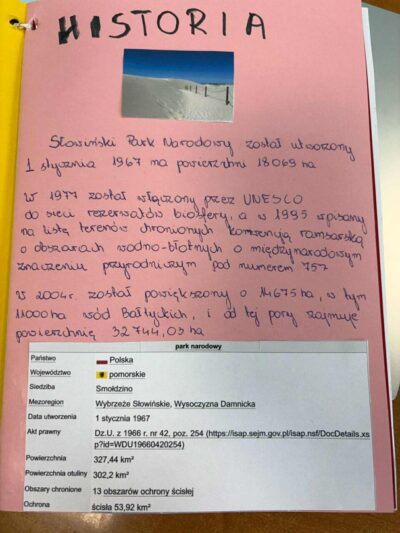 HISTORIA
Słowiński Park Narodowy został utworzony
1 stycznia 1967 na powierzchni 18069 ha
W 1977 został włączony przez UNESCO
do sieci rezerwatów biosfery, a w 1995 wpisany
na listę terenów chronionych konwencją ramsarską
o obszarach wodno-błotnych o międzynarodowym
znaczeniu przyrodniczym pod numerem 757
W 2004r. został powiększony o 14675 ha, w tym
11000 ha wód Bałtyckich, i od tej pory zajmuje
powierzchnię 32 744,03 ha
park narodowy
Państwo Polska
Województwo pomorskie
Siedziba Smołdzino
Mezoregion Wybrzeże Słowińskie, Wysoczyzna Damnicka
Data utworzenia 1 stycznia 1967
Akt prawny Dz.U. z 1966 r. nr 42, poz. 254 (https://isap.sejm.gov.pl/isap.nsf/DocDetails.xs
p?id=WDU19660420254)
Powierzchnia 327,44 km²
Powierzchnia otuliny 302,2 km²
Obszary chronione 13 obszarów ochrony ścisłej
Ochrona ścisła 53,92 km²